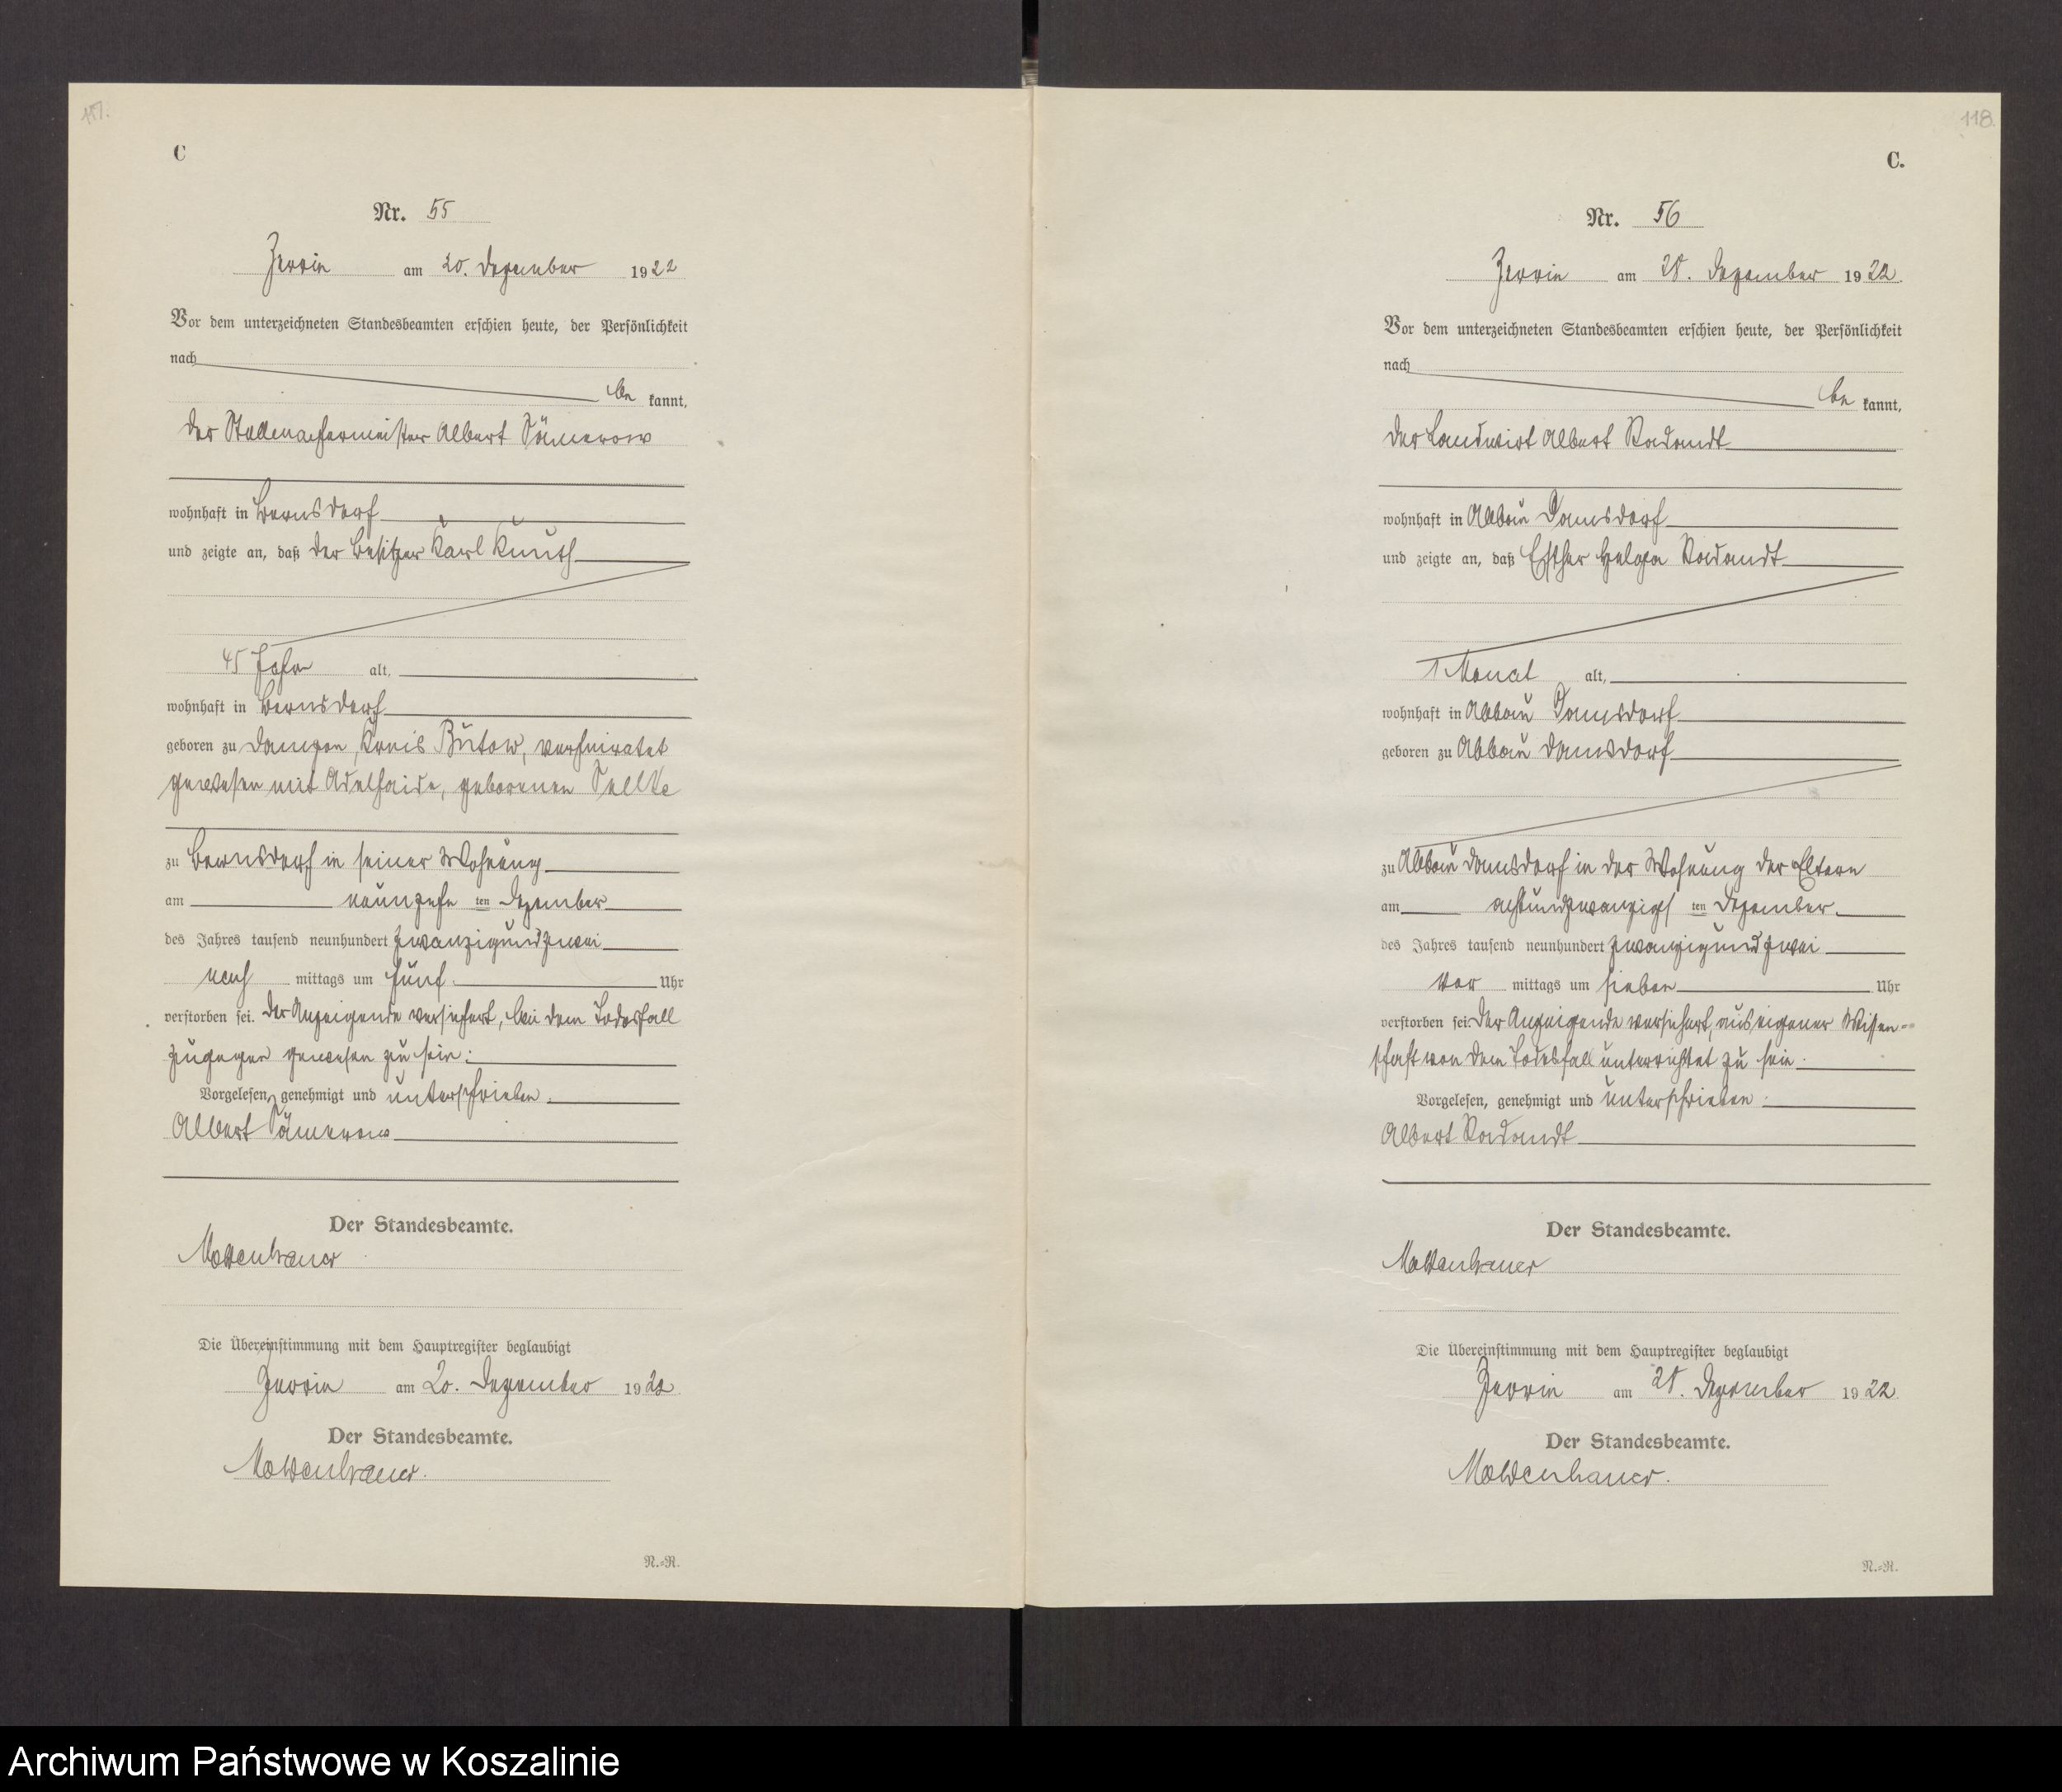 117.
C
Nr. 55
Zerrin am 20. Dezember 1922
Vor dem unterzeichneten Standesbeamten erschien heute, der Persönlichkeit
nach
be kannt,
der Stellmachermeister Albert Sömerow
wohnhaft in Bernsdorf
und zeigte an, daß der Besitzer Karl Kuuth
45 Jahr alt,
wohnhaft in Bernsdorf
geboren zu Dampen, Kreis Bütow, verheiratet
gewesen mit Adelhaide, geborenen Sellke
zu Bernsdorf in seiner Wohnung
am neunzehn ten Dezember
des Jahres tausend neunhundert zwanzigundzwei
nach mittags um fünf Uhr
verstorben sei. Der Anzeigende versichert, bei dem Todesfall
zugegen gewesen zu sein.
Vorgelesen, genehmigt und unterschrieben.
Albert Sömerow
Der Standesbeamte.
Moldenhauer
Die Übereinstimmung mit dem Hauptregister beglaubigt
Zerrin am 20. Dezember 1922
Der Standesbeamte.
Moldenhauer.
N.=R.
118.
C.
Nr. 56
Zerrin am 28. Dezember 1922.
Vor dem unterzeichneten Standesbeamten erschien heute, der Persönlichkeit
nach
be kannt,
der Landwirt Albert Radandt
wohnhaft in Abbau Damsdorf
und zeigte an, daß Esther Helga Radandt
1 Monat alt,
wohnhaft in Abbau Damsdorf
geboren zu Abbau Damsdorf
zu Abbau Damsdorf in der Wohnung der Eltern
am achtundzwanzigs ten Dezember
des Jahres tausend neunhundert zwanzigundzwei
vor mittags um sieben Uhr
verstorben sei. Der Anzeigende versichert, aus eigener Wissen-
schaft von dem Todesfall unterrichtet zu sein.
Vorgelesen, genehmigt und unterschrieben.
Albert Radandt
Der Standesbeamte.
Moldenhauer
Die Übereinstimmung mit dem Hauptregister beglaubigt
Zerrin am 28. Dezember 1922.
Der Standesbeamte.
Moldenhauer.
N.=R.
Archiwum Państwowe w Koszalinie